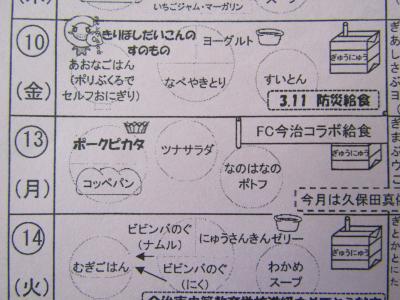 いちごジャム・マーガリン
スープ
10
(金)
きりぼしだいこんの
すのもの
ヨーグルト
ぎゅうにゅう
あおなごはん
(ポリぶくろで
セルフおにぎり)
なべやきとり
すいとん
3.11 防災給食
13
(月)
ポークピカタ
ツナサラダ
FC今治コラボ給食
ぎゅうにゅう
コッペパン
なのはなの
ポトフ
今月は久保田真
14
(火)
ビビンバのぐ
(ナムル)
にゅうさんきんゼリー
ぎゅうにゅう
むぎごはん
ビビンバのぐ
(にく)
わかめ
スープ